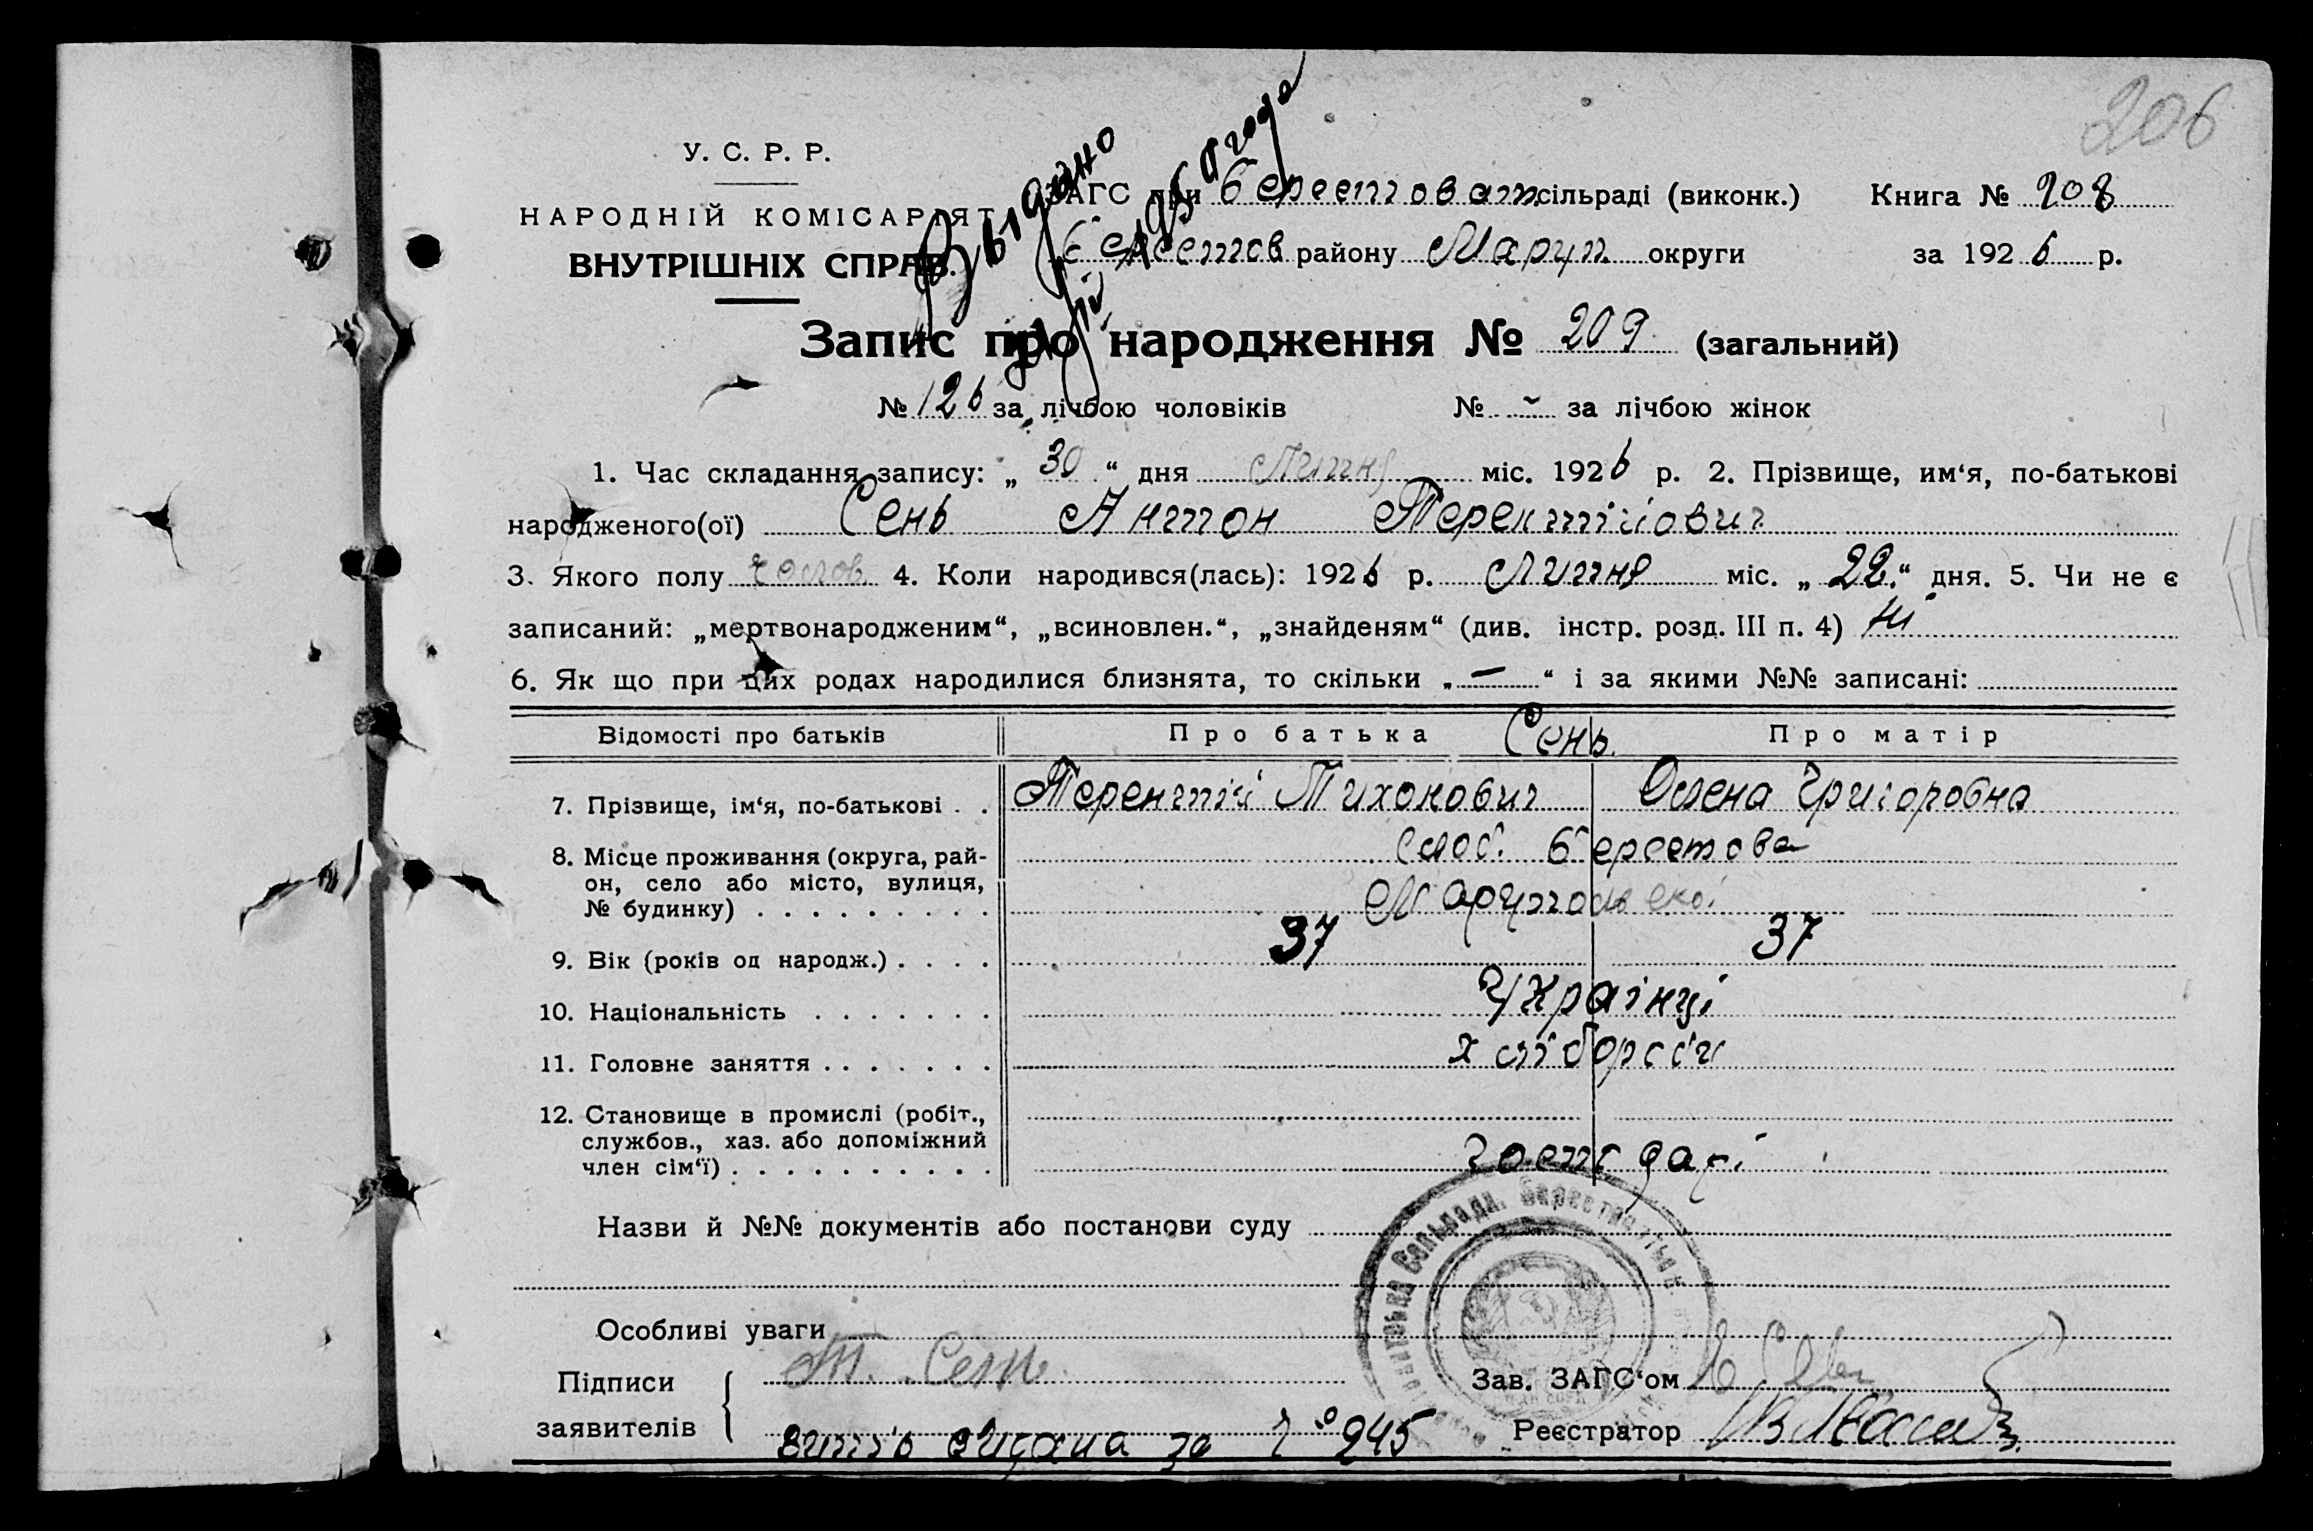 206
У. С. Р. Р.
НАРОДНІЙ КОМІСАРІЯТ
ВНУТРІШНІХ СПРАВ.
Выдано
ЗАГС при Берестоват. сільраді (виконк.) Книга № 208
Берестов району Маріуп. округи за 1926 р.
Запис про народження № 209 (загальний)
№ 126 за лічбою чоловіків № - за лічбою жінок
1. Час складання запису: „ 30 “ дня Липня міс. 1926 р. 2. Прізвище, им‘я, по-батькові
народженого(ої) Сень Антон Терентійович
3. Якого полу чолов. 4. Коли народився(лась): 1926 р. Липня міс. „ 22. “ дня. 5. Чи не є
записаний: „мертвонародженим“, „всиновлен.“, „знайденям“ (див. інстр. розд. III п. 4) Ні
6. Як що при цих родах народилися близнята, то скільки „ — “ і за якими №№ записані:
Відомості про батьків Про батька Сень. Про матір
7. Прізвище, ім‘я, по-батькові . . Терентій Тихонович Олена Григоровна
8. Місце проживання (округа, рай-
он, село або місто, вулиця,
№ будинку) . . . . . . . . . .
Слоб. Берестова
Маріупольскої
9. Вік (років од народж.) . . . . 37 37
10. Національність . . . . . . . Українці
11. Головне заняття . . . . . . . хлібороби
12. Становище в промислі (робіт.,
службов., хаз. або допоміжний
член сім‘ї) . . . . . . . . . .
господарі
Назви й №№ документів або постанови суду
Особливі уваги
Підписи
заявителів
Т. Сень
Зав. ЗАГС‘ом
Витяг видана за № 945
Реєстратор